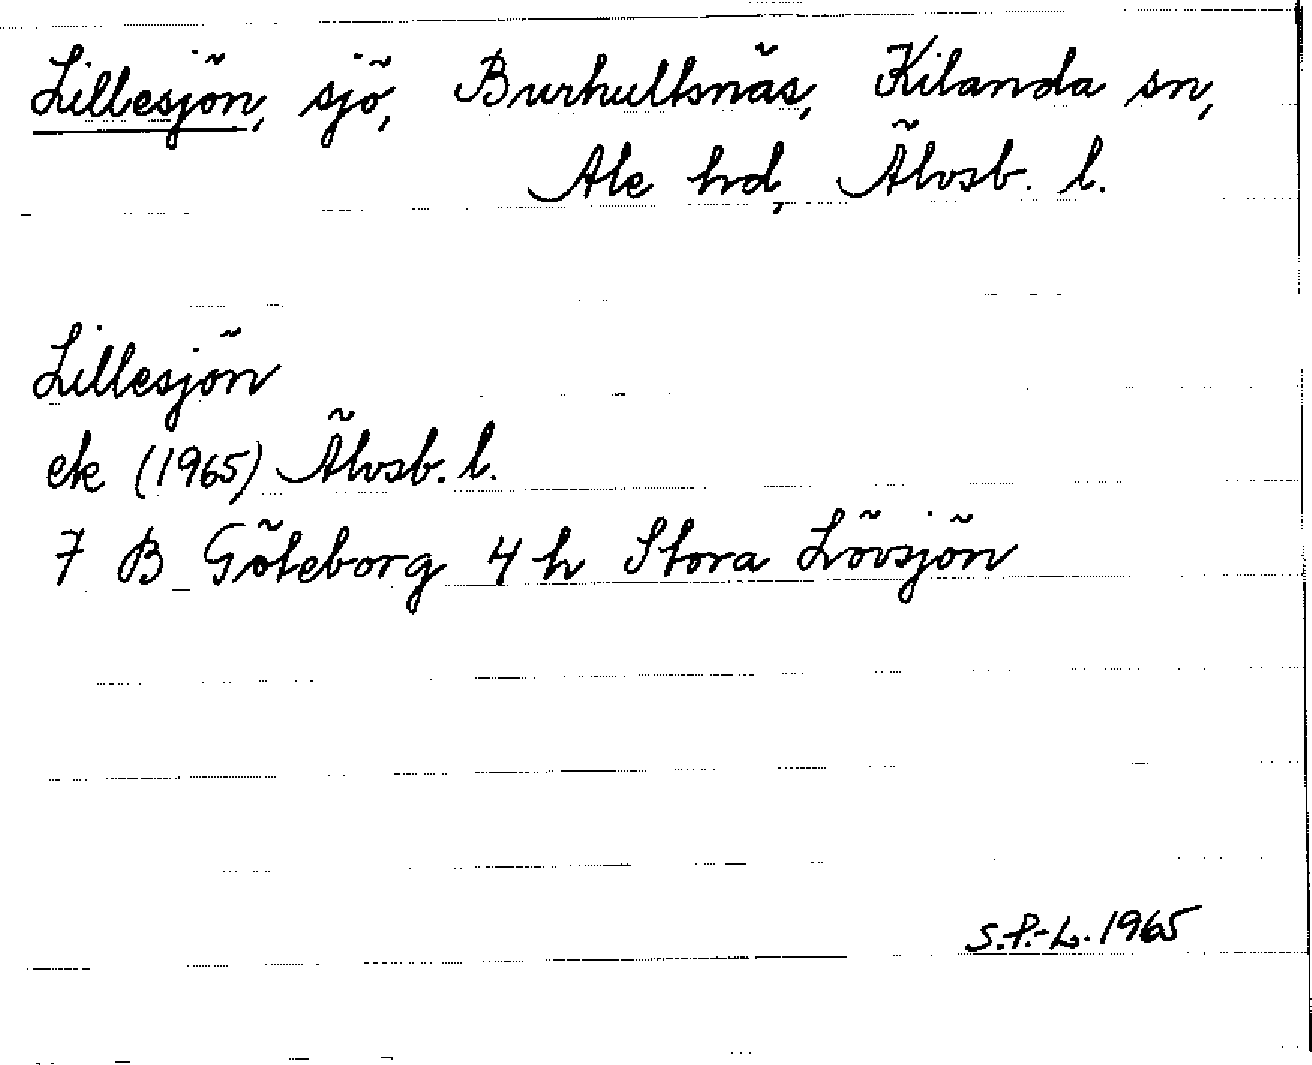 Lillesjön, sjö, Burhultsnäs, Kilanda sn,
Ale hd, Älvsb. l.
Lillesjön
ek (1965) Älvsb. l.
7 B Göteborg 4 h Stora Lövsjön
S.P.-L. 1965